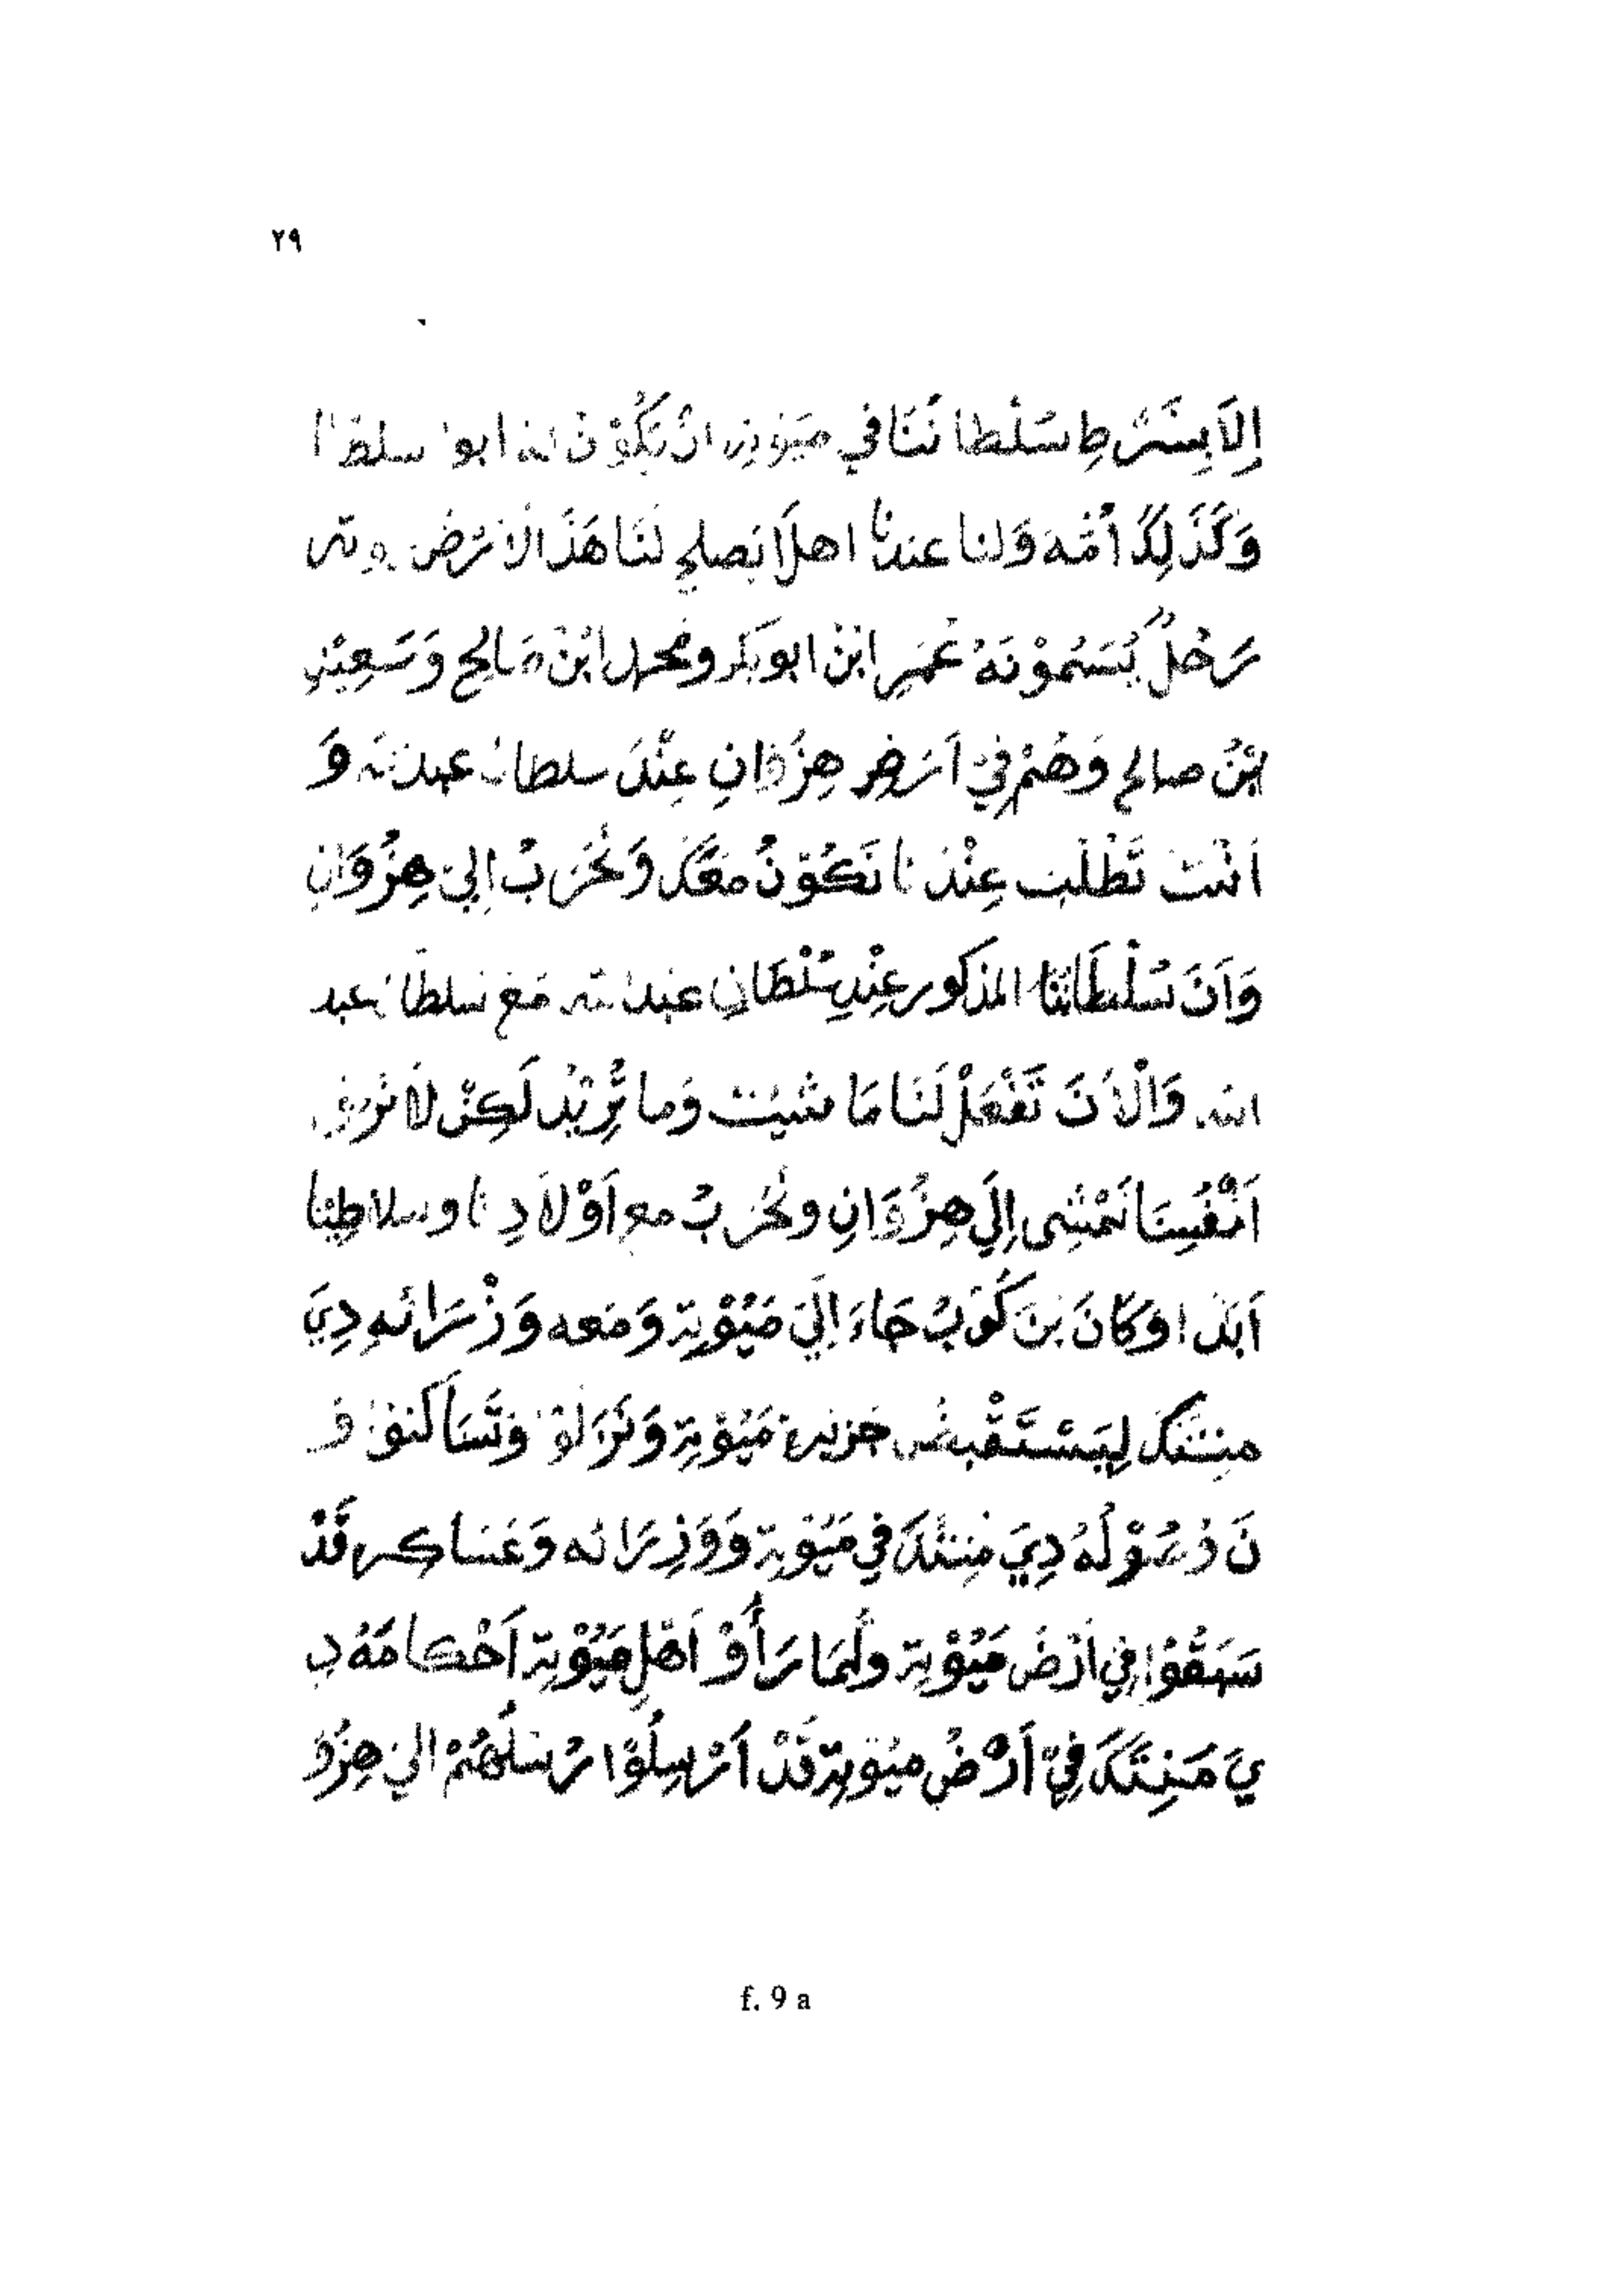 ٢٩
إِلَّا بِشَرْطِ سُلْطَانَنَا فِي مَيُوْتِه اَنْ يَكُوْنْ لَهُ ابوا سلطانا
وَكَذَلِكَ اُمَّهُ وَلنا عندنا اهلًا يصلح لَنَا هَذَا الْاَرْضْ
رَجُلٌ يُسَمُوْنَهُ عُمَر ابْنْ ابو بكر ومحمد ابْنْ صَالِح وَسَعِيْد
بْنُ صالح وَهُمْ فِيْ اَرَضِ هِزُوَانِ عِنْدَ سلطان عبد الله وَ
اَنْتَ تَطْلُب عِنْدَنَا نَكُوْنُ مَعَكَ وَنَحْرَبُ اِلىَ هِزُوَانِ
وَاَنَ سُلْطَانُنَا المذكور عِنْدِ سُلْطَانِ عبد الله مَعَ سُلطَان عبد
الله وَالْاَنَ تَفْعَلْ لَنَا مَا شئت وَما تُرِيْدُ لَكِنْ لَا نَرضي
اَنْفُسِنَا نَمْشِى اِلَي هِزُوَانِ ونَحْرَبُ مع اَوْلَادِنا وسلاطِيننا
اَبَدًا وَكَانَ بَنَ كُوْبُ جَاءَ اِلَيَ مَيُوْتِهِ وَمَعه وَزْرَائه دِيَ
مِنتَنَكَ لِيَسْتَقْبِضُ خزينة مَيُوْتِهِ وَنَزَلُوْا وَتَسَاكنوْا وَ
نَ دُعُوْلَهُ دِيَ مَنِتَنَكَ فِي مَيُوْتِهِ وَوَزِرَائه وَعَسَاكِره قَدْ
سَبَقُوْا فِي اَرْضَ مَيُوْتِهِ وَلَمَا رَأَوْ اَهْلِ مَيُوْتِهِ اَحْكامَهُ دِ
يَ مَنِتَنَكَ فِيْ اَرْضُ مَيُوْتِهِ قَدْ اَرْسِلُوْا رُسُلَهُمْ الىَ هِزُوَ
f. 9 a